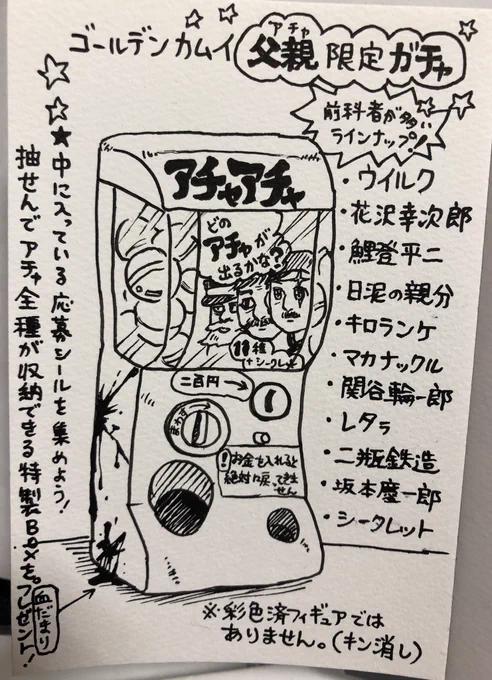 ゴールデンカムイ
アチャ
父親限定ガチャ
前科者が多い
ラインナップ!
アチャアチャ
どの
アチャが
出るかな?
11種
(+シークレット)
二百円→
まわす
!お金を入れると
絶対に戻ってきません
・ウイルク
・花沢幸次郎
・鯉登平二
・日泥の親分
・キロランケ
・マカナックル
・関谷輪一郎
・レタㇻ
・二瓶鉄造
・坂本慶一郎
・シークレット
★中に入っている応募シールを集めよう!
抽せんでアチャ全種が収納できる特製BOXをプレゼント!
血だまり
※彩色済フィギュアでは
ありません。(キン消し)